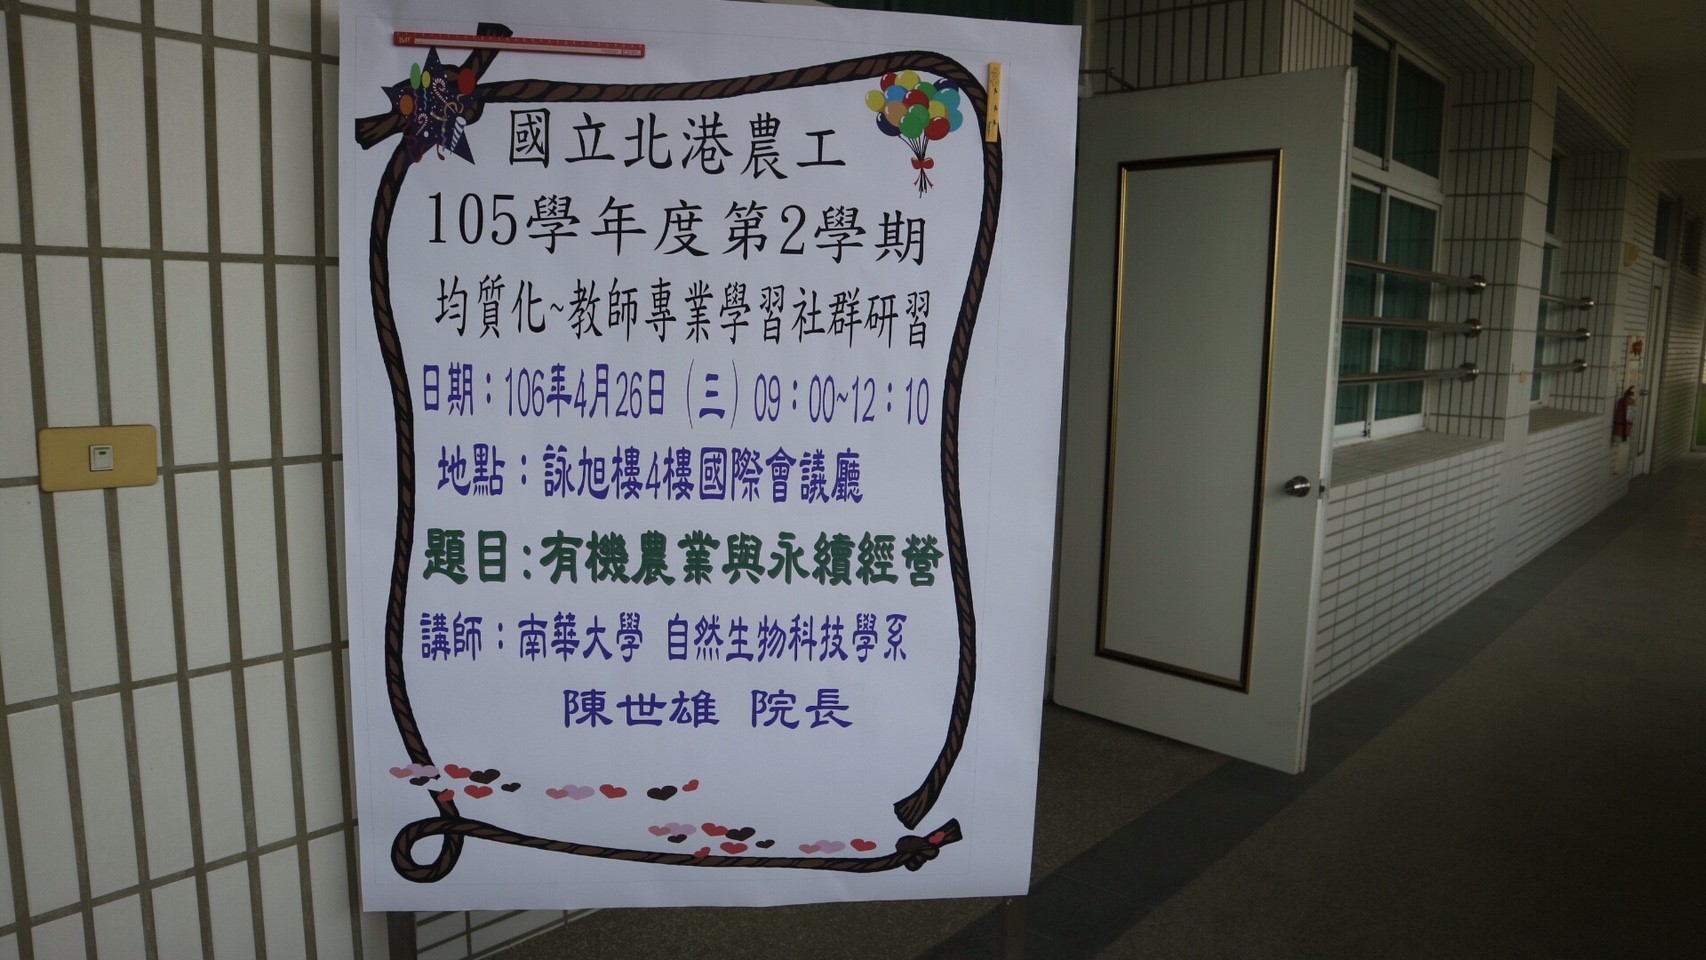 國立北港農工
105學年度第2學期
均質化~教師專業學習社群研習
日期：106年4月26日（三）09：00~12：10
地點：詠旭樓4樓國際會議廳
題目:有機農業與永續經營
講師：南華大學 自然生物科技學系
陳世雄 院長